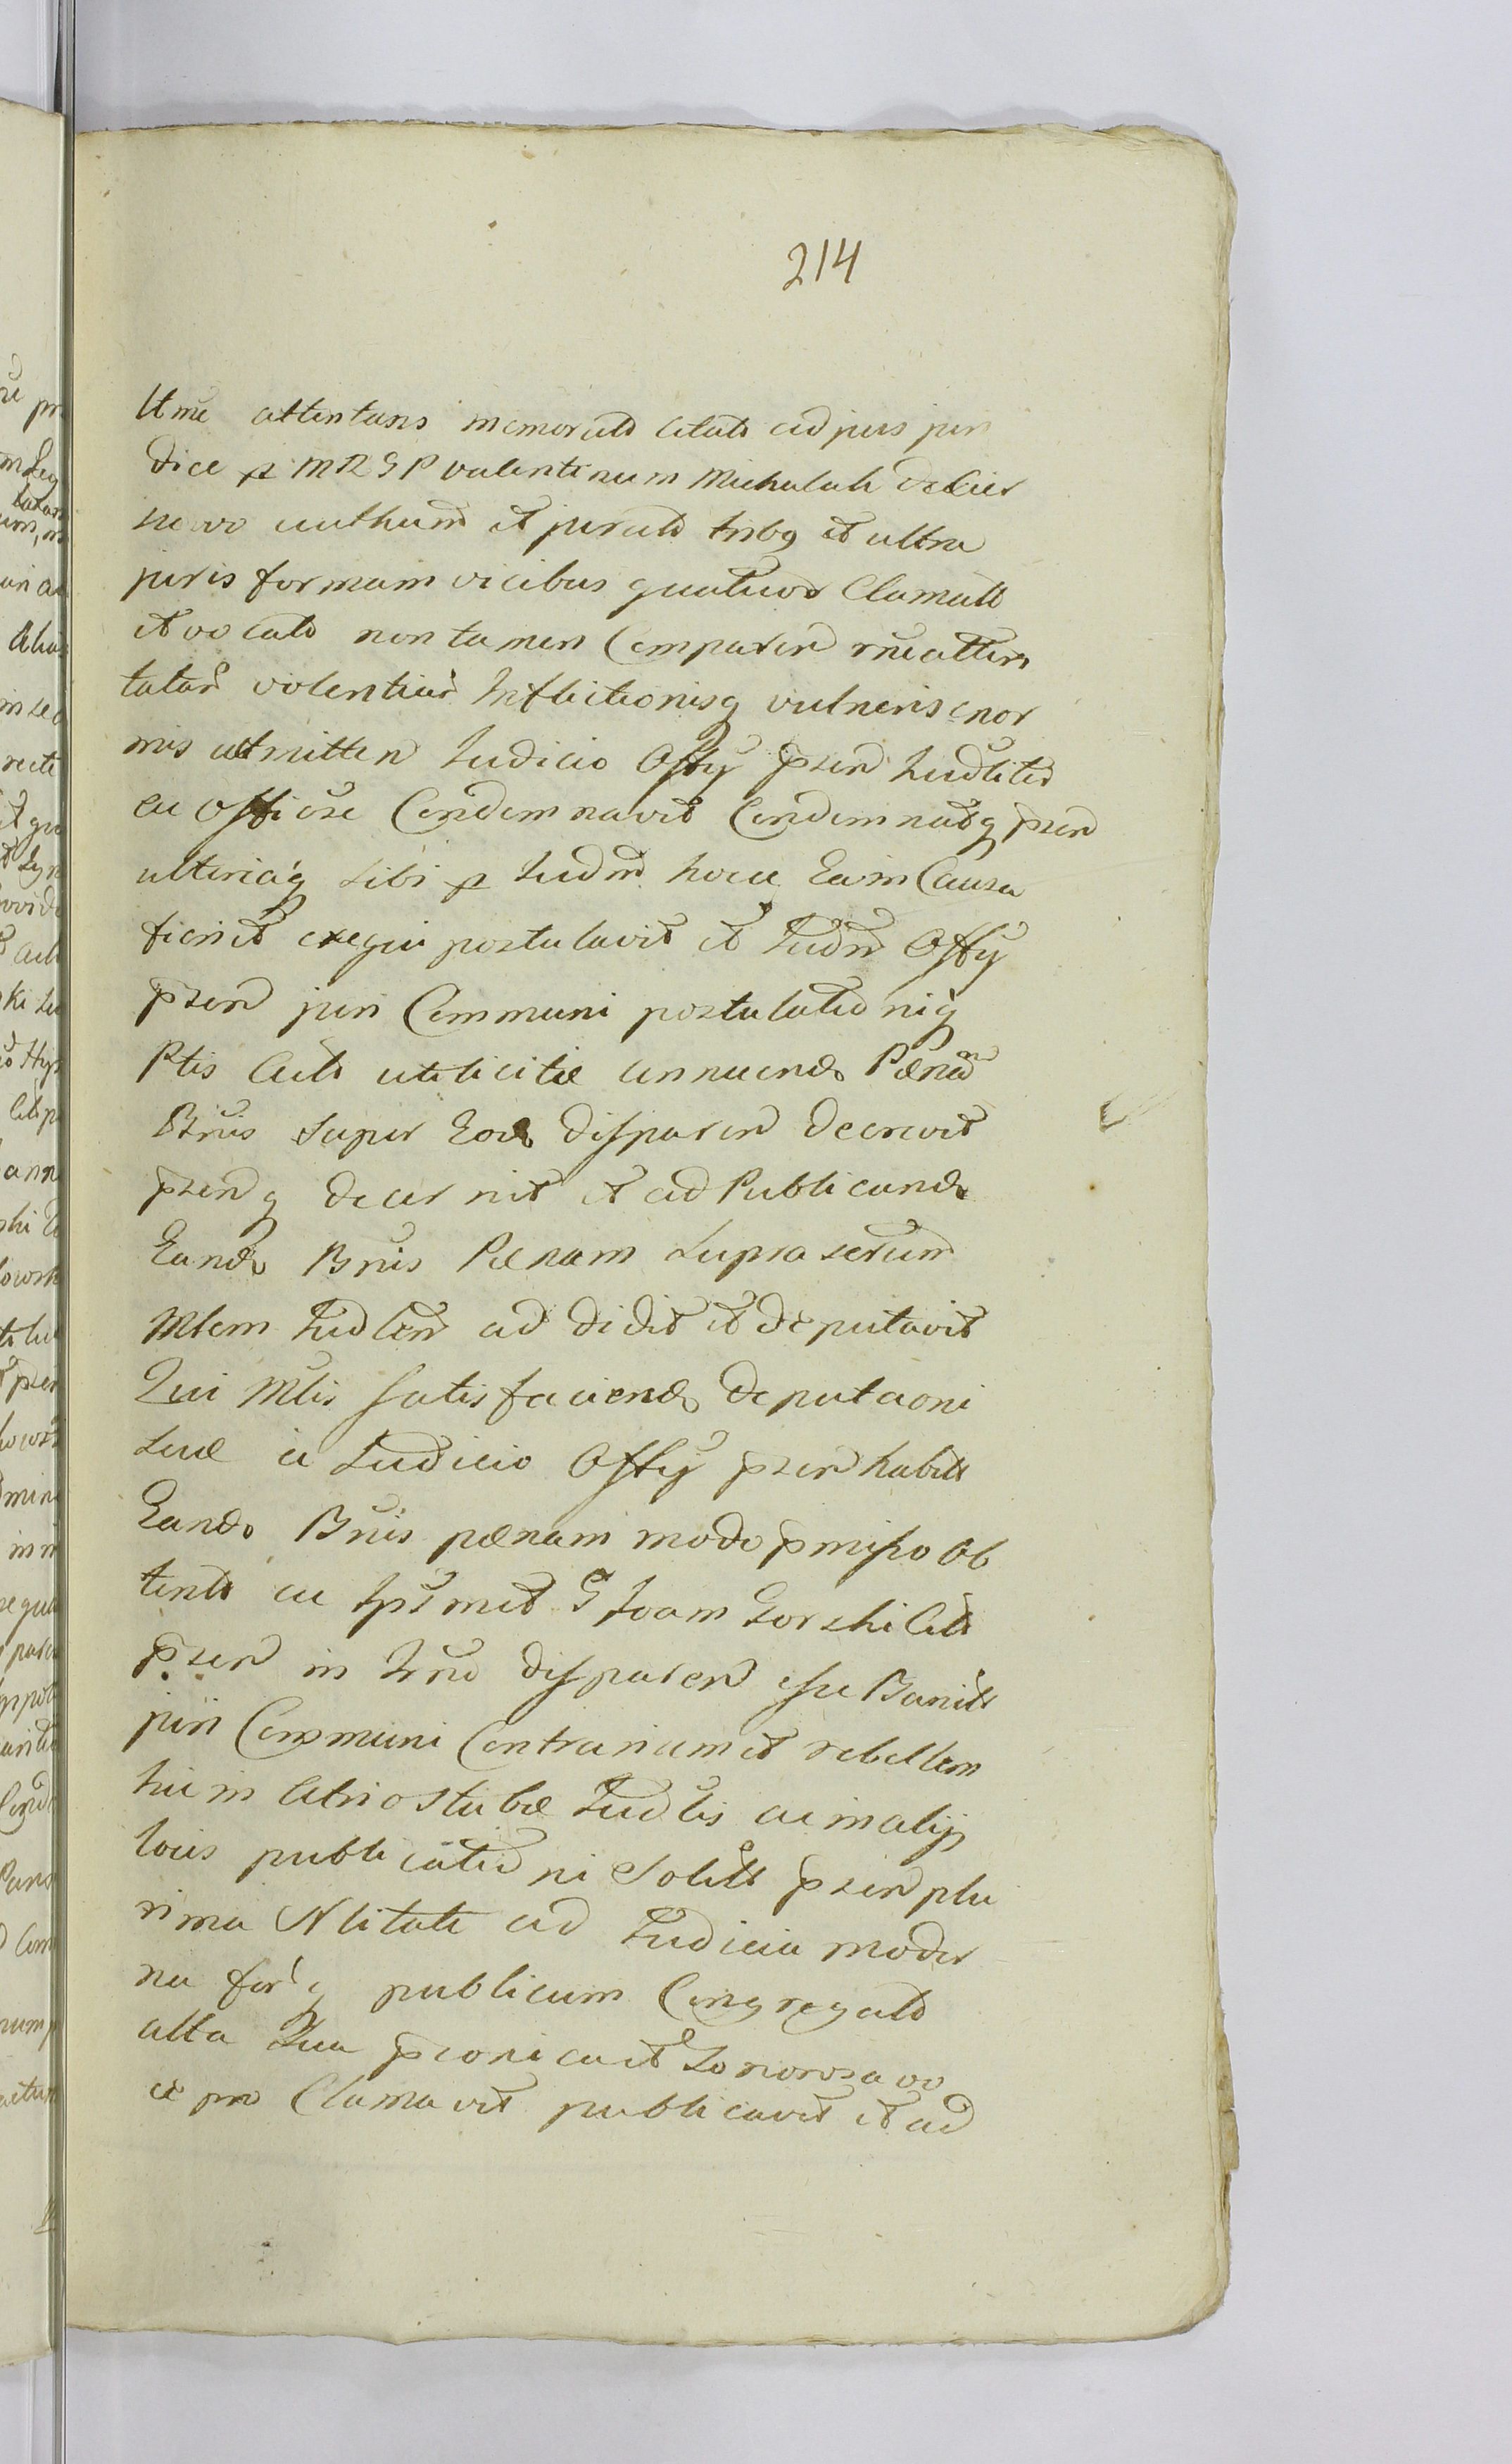 214
attentans memorato citato ad jus juri
dice p MRGP Valentinum Michalak de Czer
novo authum et jurato tribq et ultra
juris formam vicibus quatuor Clamato
et vocato non tamen Comparen rneatten
tatar violentiar Inflictionisq vulneris enor
mis admitten Iudicio Offy psen Iudliter
ac officiose Condemnavit Condemnatq psen
ulteriaq sibi p Iudm hocce Ea in Causa
fieri et exequi postulavit et Iudm Offy
psen juri Communi postulationiq
Ptis Acto utilicitae annuendo Paenam
Bnis super Eod disparen Decrevit
psenq decernit et ad Publicand
Eand Bnis Paenam supra serum
Mlem Iudlem addidit et deputavit
Qui Mlis satisfaciend deputaoni
suae a Iudicio Offy psen habitt
Eand Bnis paenam modo pmisso ob
tent ac Ipsmet G Joam Gorski Citt
psen in Trno disparen esse Banitt
juri Communi Contrarium et rebellem
hic in Atrio Stubae Iudlis ac in alijs
locis publicationi solitt psen plu
rima Nlitate ad Iudicia moder
na forq publicum Congregato
alta sua pconica et sonorosa vo
ce pro Clamavit publicavit et ad